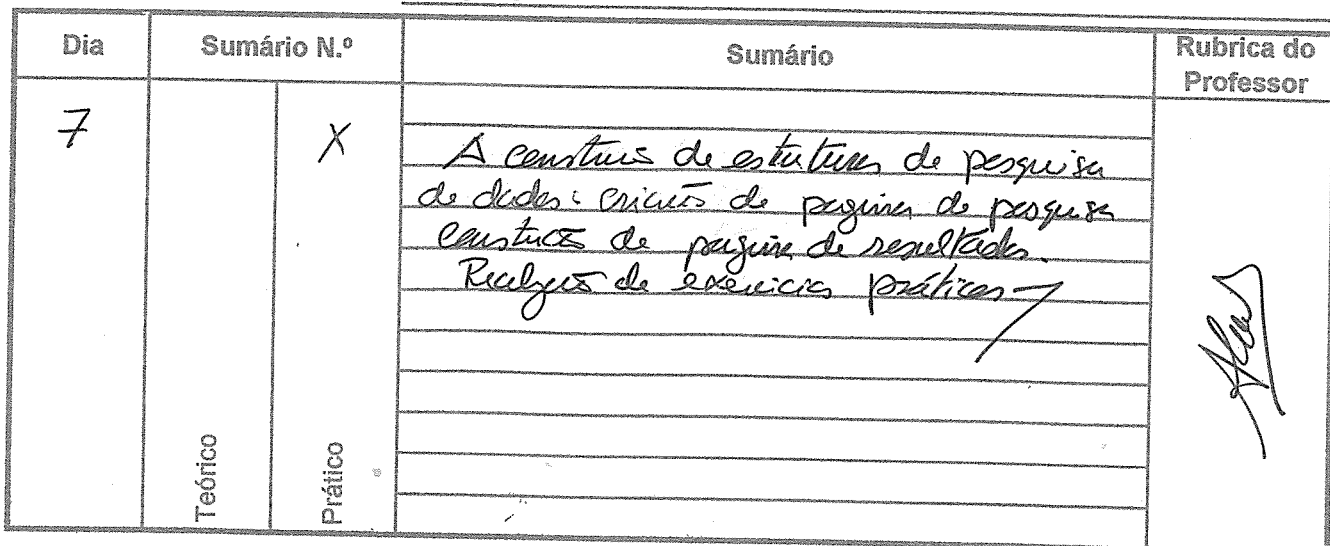 Dia Sumário N.º Sumário Rubrica do Professor
7 X
A construção de estruturas de pesquisa
de dados: criação de pagina de pesquisa
construção de pagina de resultados.
Realização de exercicios práticos
Teórico Prático